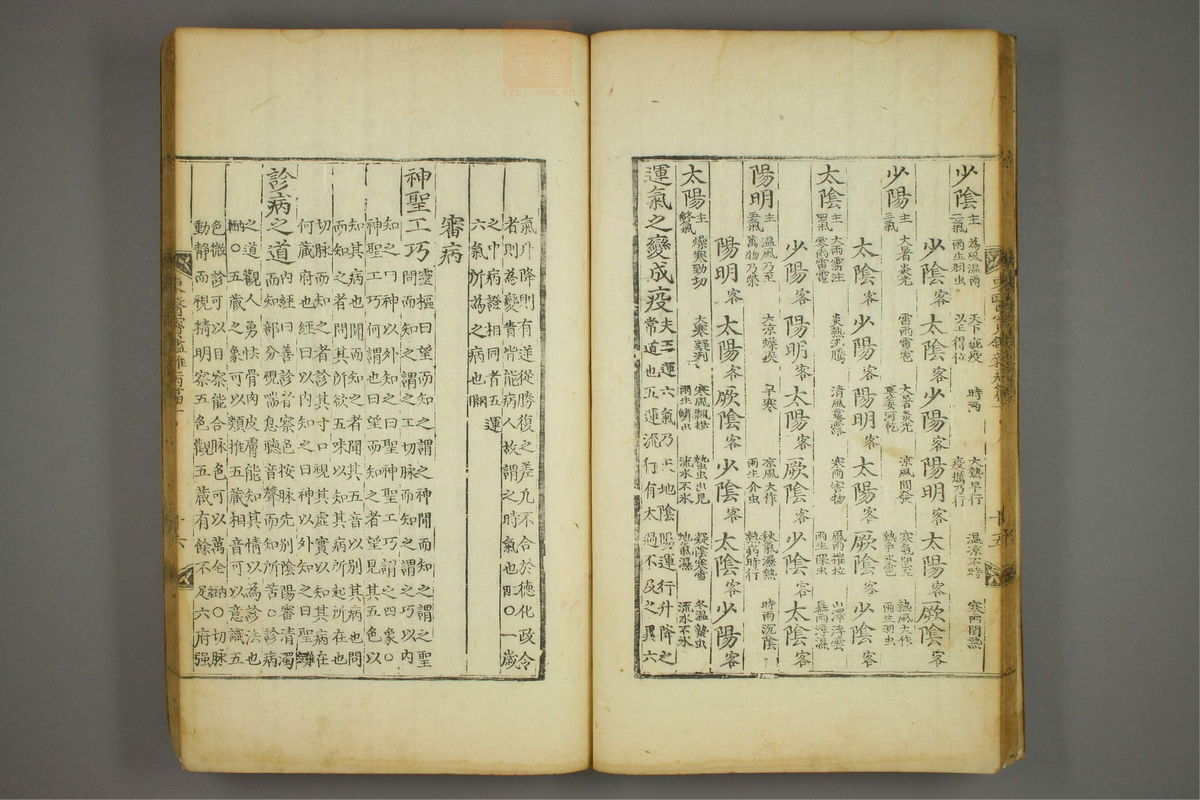 少陰 主二氣 為風溫雨 雨生羽虫 天下疵疫 以正得位 時雨 大熱早行 疫癘乃行 溫凉不時 寒雨間熱
少陰客 太陰客 少陽客 陽明客 太陽客 厥陰客
少陽 主三氣 大暑炎光 雷雨電雹 大暑炎光 草萎河乾 凉風間發 寒氣間至 熱爭氷雹 熱風大作 雨生羽虫
太陰客 少陽客 陽明客 太陽客 厥陰客 少陰客
太陰 主四氣 大雨霪注 寒雨雷電 炎熱沸騰 清風霧露 寒雨害物 風雨摧拉 雨生倮虫 山澤浮雲 暴雨溽濕
少陽客 陽明客 太陽客 厥陰客 少陰客 太陰客
陽明 主五氣 溫風乃至 萬物乃榮 大凉燥疾 早寒 凉風大作 雨生介虫 秋氣濕熱 熱病時行 時雨沉陰
陽明客 太陽客 厥陰客 少陰客 太陰客 少陽客
太陽 主終氣 燥寒勁切 大寒凝冽 寒風飄揚 雨生鱗虫 蟄虫出見 流水不氷 凝陰寒雪 地氣濕 冬溫蟄虫 流水不氷
運氣之變成疫 夫五運六氣乃天地陰陽運行升降之
常道也五運流行有太過不及之異六
氣升降則有逆從勝復之差凢不合於德化政令
者則為變眚皆能病人故謂之時氣也 ○一歲
之中病證相同者五運
六氣所為之病也
審病
神聖工巧 靈樞曰望而知之謂之神聞而知之謂之聖
問而知之謂之工切脉而知之謂之巧以內
知之曰神以外知之曰聖神聖工巧謂之四象○
神聖工巧何謂也曰望而知之者望見其五色以
知其病也聞而知之者聞其五音以別其病也問
而知之者問其所欲五味以知其病所起所在也
切脉而知之者診其寸口視其虛實以知其病在
何藏府也經曰以內知之曰神以外知之曰聖
診病之道 內經曰善診者察色按脉先別陰陽審清濁
而知部分視喘息聽音聲而知所苦○診病
之道觀人勇怯骨肉皮膚能知其情以為診法也
○五藏之象可以類推五藏相音可以意識五
色微診可以目察能合脉色可以萬全 ○切脉
動靜而視精明察五色觀五藏有餘不足六府强
東醫寶鑑雜病篇一
十五
十六
zysj.com.cn